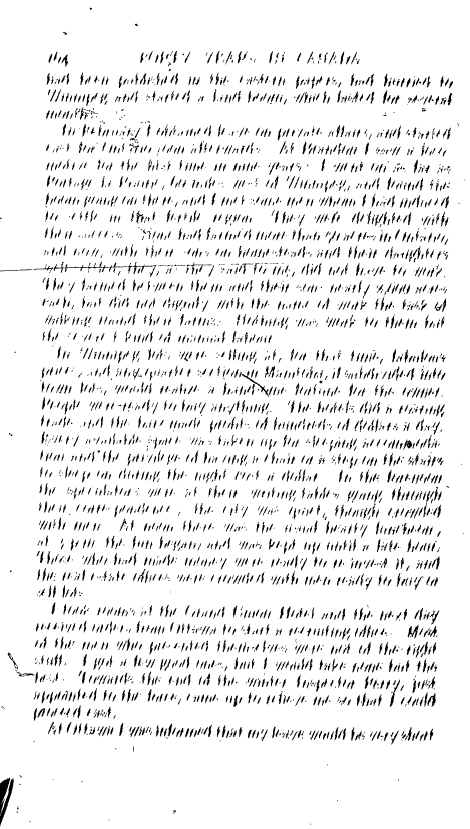 164 FORTY YEARS IN CANADA
had been published in the eastern papers, had hurried to
Winnipeg and started a land boom, which lasted for several
months.
In February I obtained leave on private affairs, and started
east
for the first time in nine years. I went on as far as
Portage la Prairie, miles west of Winnipeg, and found the
boom going on there, and I met some men whom I had induced
to settle in that fertile region. They were delighted with
their success. had farmed more than years in Ontario,
and now, with their sons on homesteads and their daughters
well settled, they, as they said to me, did not have to work.
They farmed between them and their sons nearly acres
each, but did not dignify with the name of work the task of
walking round their farms. was work to them but
the kind of manual labour.
In Winnipeg lots were selling at, for that time, fabulous
prices, and any quarter section in Manitoba, if subdivided into
town lots, would realize a handsome fortune for the owner.
People were ready to buy anything. The hotels did a roaring
trade and the bars made profits of hundreds of dollars a day.
Every available space was taken up for sleeping accommoda-
tion and the privilege of having a chair or a step on the stairs
to sleep on during the night cost a dollar. In the forenoon
the speculators were at their writing tables going through
their correspondence; the city was quiet, though crowded
with men. At noon there was the usual hearty luncheon,
at 3 p.m. the fun began, and was kept up until a late hour.
Those who had made money were ready to re-invest it, and
the real estate offices were crowded with men ready to buy or
sell lots.
I took rooms at the Grand Union Hotel and the next day
received orders from Ottawa to start a recruiting office. Most
of the men who presented themselves were not of the right
stuff. I got a few good ones, but I would take none but the
best. Towards the end of the winter Inspector Perry, just
appointed to the force, came up to relieve me so that I could
proceed east.
At Ottawa I was informed that my leave would be very short